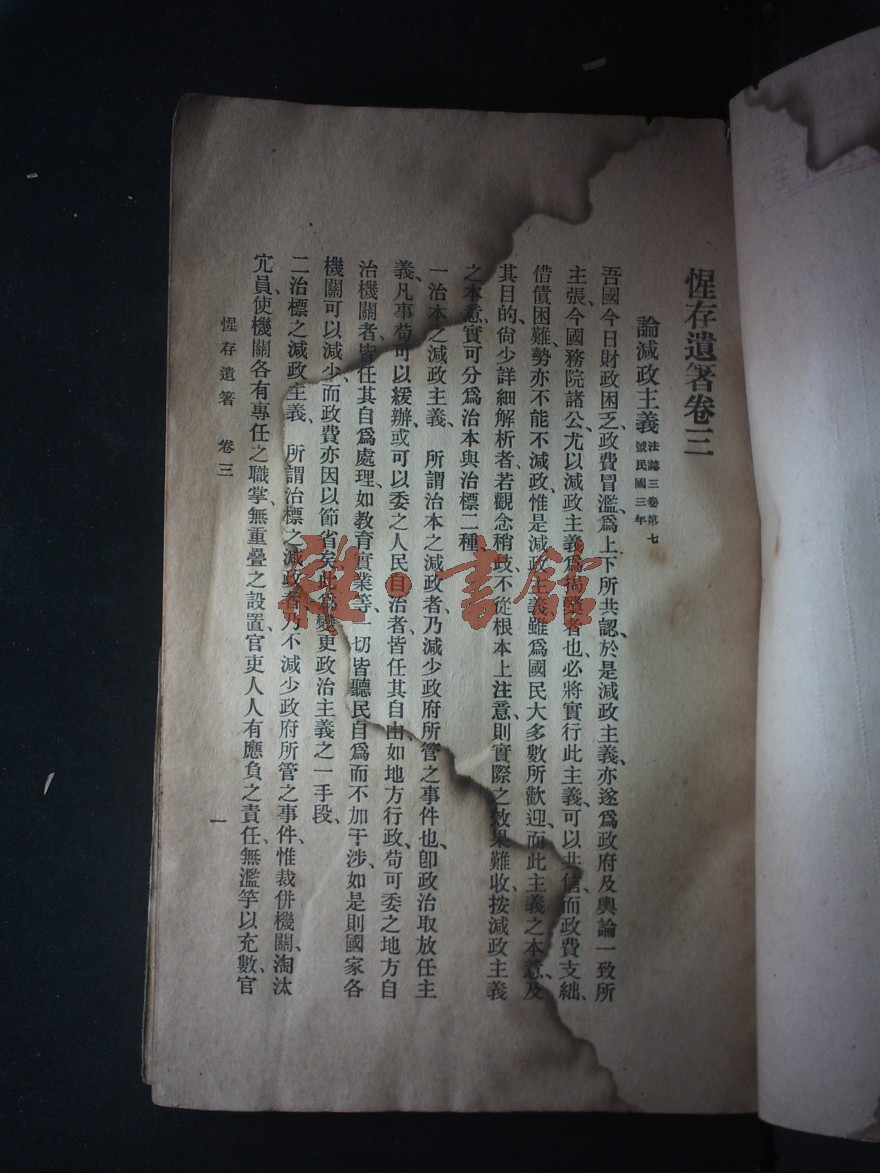 惺存遺著卷三
論減政主義 法誌三卷第七號民國三年
吾國今日財政困乏、政費冒濫、爲上下所共認、於是減政主義、亦遂爲政府及輿論一致所
主張、今國務院諸公、尤以減政主義爲揭櫫者也、必將實行此主義、可以共信、而政費支絀、
借債困難、勢亦不能不減政、惟是減政主義、雖爲國民大多數所歡迎、而此主義之本意、及
其目的、尙少詳細解析者、若觀念稍歧、不從根本上注意、則實際之效果難收、按減政主義
之本意、實可分爲治本與治標二種、
一治本之減政主義、所謂治本之減政者、乃減少政府所管之事件也、卽政治取放任主
義、凡事苟可以緩辦、或可以委之人民自治者、皆任其自由、如地方行政、苟可委之地方自
治機關者、皆任其自爲處理、如敎育實業等、一切皆聽民自爲、而不加干涉、如是則國家各
機關可以減少、而政費亦因以節省矣、此爲變更政治主義之一手段、
二治標之減政主義、所謂治標之減政者、乃不減少政府所管之事件、惟裁併機關、淘汰
冗員、使機關各有專任之職掌、無重疊之設置、官吏人人有應負之責任、無濫竽以充數、官
惺存遺著 卷三
一
雜·書館